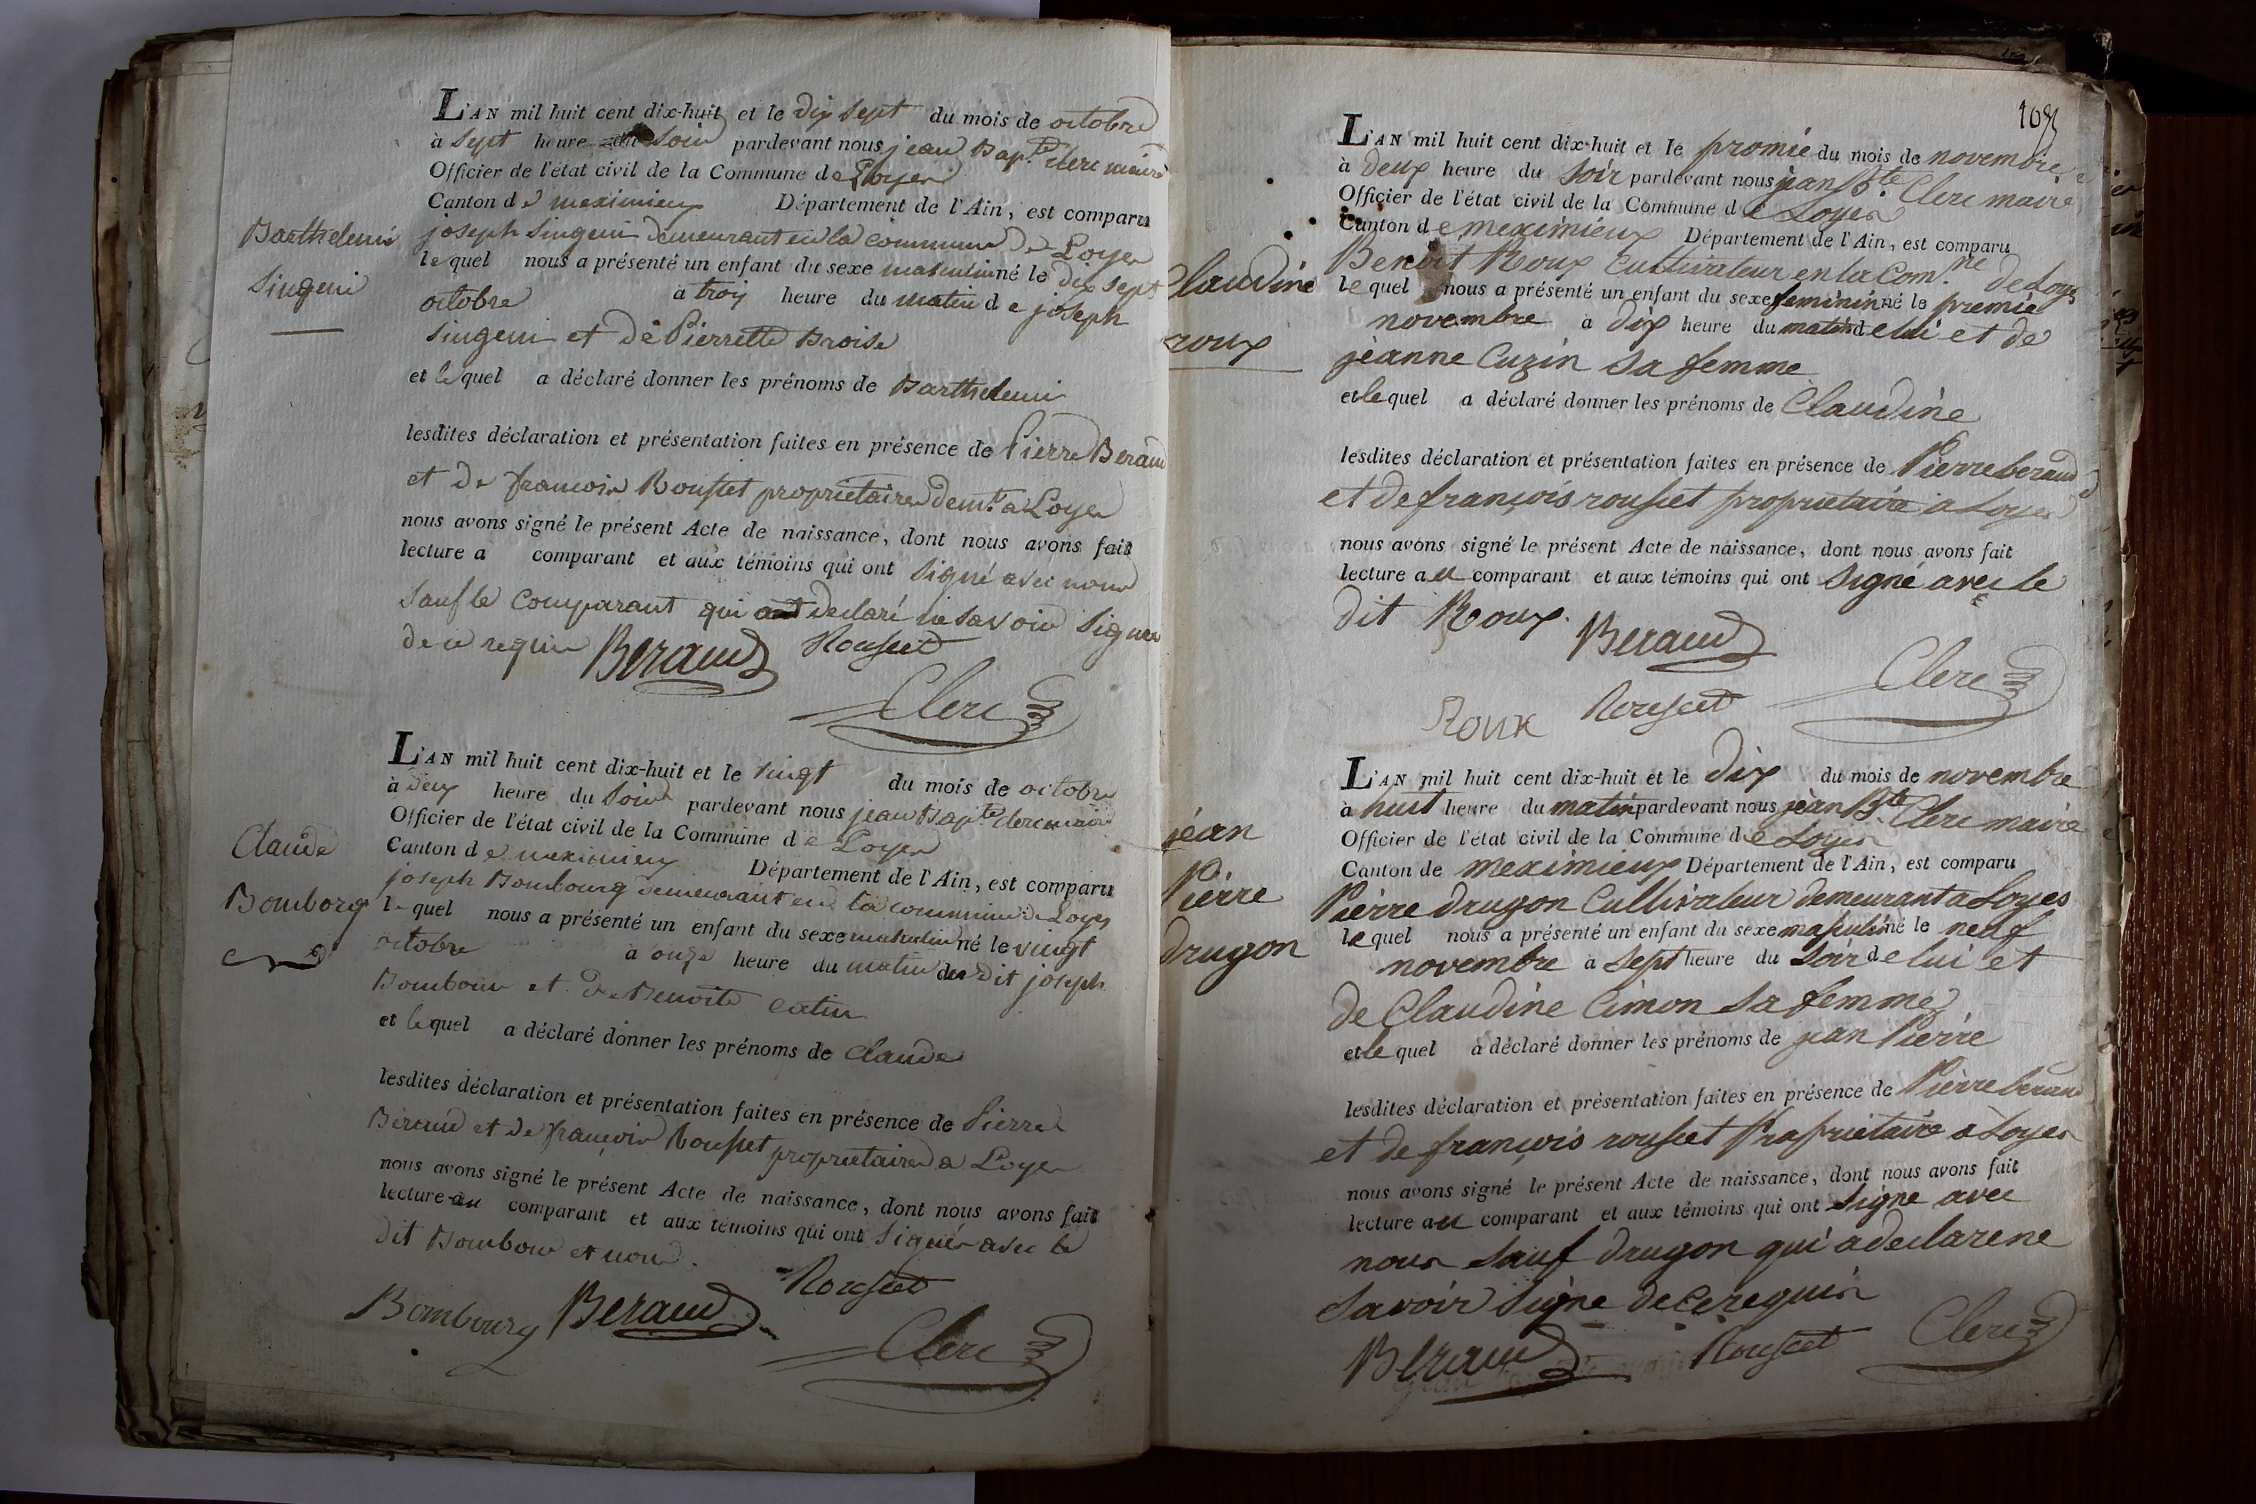 Barthelemi
Singeni
L'AN mil huit cent dix-huit et le dix sept du mois de octobre
à sept heure du soir pardevant nous jean Bap.te clerc maire
Officier de l'état civil de la Commune de Loyes
Canton de meximieux Département de l'Ain, est comparu
joseph Singeni demeurant en la commune de Loyes
lequel nous a présenté un enfant du sexe masculin né le dix sept
octobre à trois heure du matin de joseph
Singeni et de Pierrette Broise
et lequel a déclaré donner les prénoms de Barthelemi
lesdites déclaration et présentation faites en présence de Pierre Beraud
et de francois Rousset proprietaires demt. a Loyes
nous avons signé le présent Acte de naissance, dont nous avons fait
lecture a comparant et aux témoins qui ont signé avec nous
sauf le comparant qui a declaré ne savoir signer
de ce requis Beraud Rousset
Clerc
Claude
Bomborg
L'AN mil huit cent dix-huit et le vingt du mois de octobre
à deux heure du soir pardevant nous jean Bapte clerc maire
Officier de l'état civil de la Commune de Loyes
Canton de meximieux Département de l'Ain, est comparu
joseph Bombourg demeurant en la commune de Loyes
lequel nous a présenté un enfant du sexe masculin né le vingt
octobre à onze heure du matin du dit joseph
Bombour et de Benoite catin
et lequel a déclaré donner les prénoms de claude
lesdites déclaration et présentation faites en présence de Pierre
Beraud et de françois Rousset proprietaires a Loyes
nous avons signé le présent Acte de naissance, dont nous avons fait
lecture au comparant et aux témoins qui ont signés avec le
dit Bombour et nous.
Rousset
Bombourg Beraud
Clerc
Claudine
roux
L'AN mil huit cent dix-huit et le promié du mois de novembre
à deux heure du soir pardevant nous jean B.te Clerc maire
Officier de l'état civil de la Commune de Loyes
Canton de meximieux Département de l'Ain, est comparu
Benoit Roux Cultivateur en la Com.ne de Loyes
lequel nous a présenté un enfant du sexe feminin né le premié
novembre à dix heure du matin de lui et de
jeanne Cuzin sa femme
et lequel a déclaré donner les prénoms de Claudine
lesdites déclaration et présentation faites en présence de Pierre beraud
et de françois rousset proprietaire a Loyes
nous avons signé le présent Acte de naissance, dont nous avons fait
lecture au comparant et aux témoins qui ont signé avec le
dit Roux. Beraud
Clerc
Roux Rousset
jean
Pierre
drugon
L'AN mil huit cent dix-huit et le dix du mois de novembre
à huit heure du matin pardevant nous jean B.te Clerc maire
Officier de l'état civil de la Commune de Loyes
Canton de meximieux Département de l'Ain, est comparu
Pierre drugon Cultivateur demeurant a Loyes
lequel nous a présenté un enfant du sexe masculin né le neuf
novembre à sept heure du soir de lui et
de Claudine Cimon sa femme
et lequel a déclaré donner les prénoms de jean Pierre
lesdites déclaration et présentation faites en présence de Pierre beraud
et de françois rousset Propriétaire a Loyes
nous avons signé le présent Acte de naissance, dont nous avons fait
lecture au comparant et aux témoins qui ont signé avec
nous sauf drugon qui a declare ne
savoir signe de ce requis
Beraud Rousset Clerc